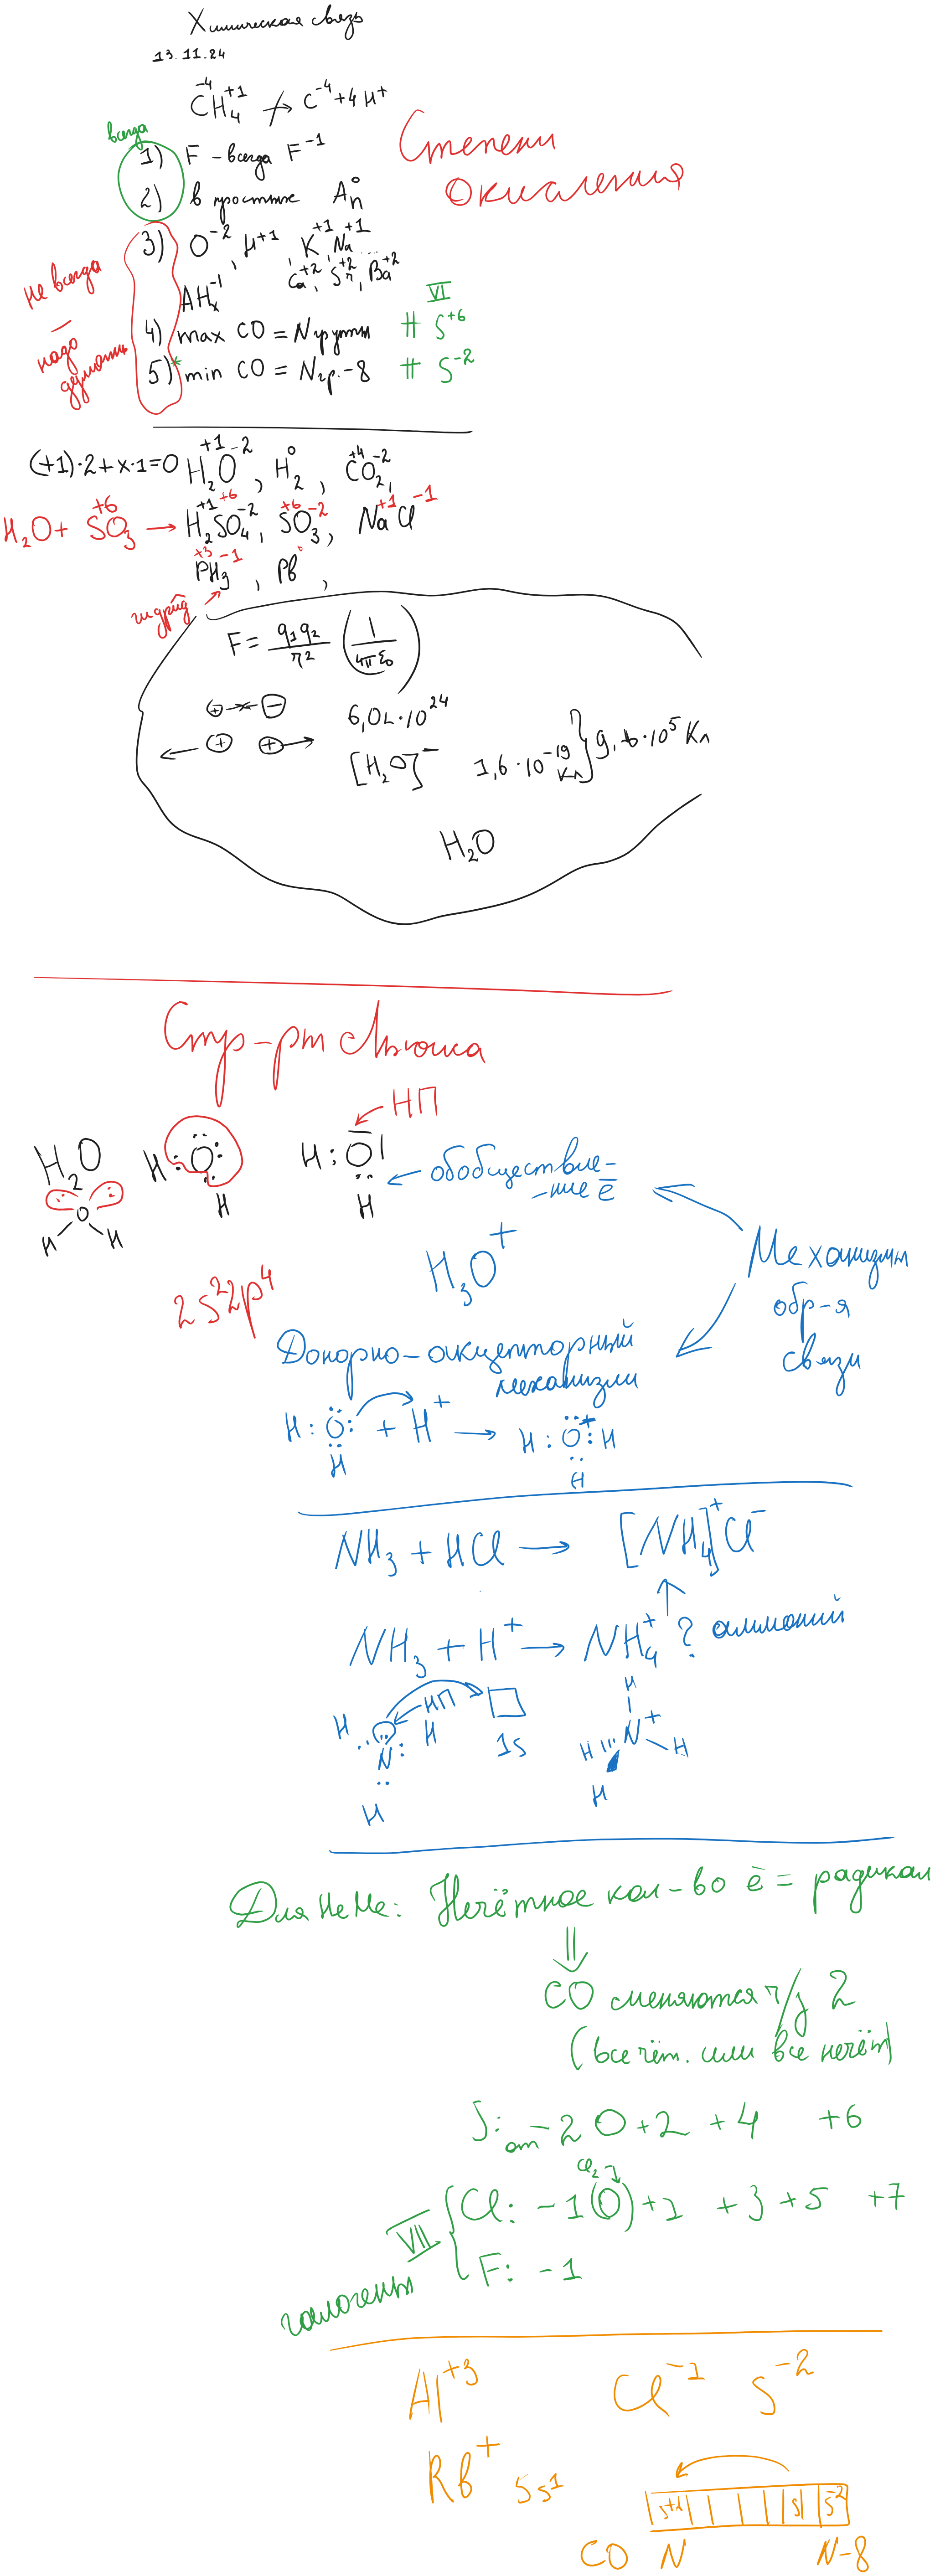 Химическая связь
13.11.24
C⁻⁴H₄⁺¹ ↛ C⁻⁴ + 4H⁺
Степени
окисления
всегда
1) F – всегда F⁻¹
2) в простых Aₙ⁰
3) O⁻², H⁺¹, K⁺¹, Na⁺¹ ...
Ca⁺², Sr⁺², Ba⁺²
AHₓ⁻¹
не всегда
–
надо
думать
VI
4) max CO = Nгруппы # S⁺⁶
5)* min CO = Nгр.-8 # S⁻²
(+1)·2+x·1=0 H₂⁺¹O⁻², H₂⁰, C⁺⁴O₂⁻²,
H₂O + S⁺⁶O₃ → H₂⁺¹S⁺⁶O₄⁻², S⁺⁶O₃⁻², Na⁺¹Cl⁻¹
P⁺³H₃⁻¹, Pb⁰,
гидрид
F = q₁q₂/r² (1/4πε₀)
⊕ ⊖
⊕ ⊕
6,02·10²⁴
[H₂O]⁻ 1,6·10⁻¹⁹ Кл } 9,6·10⁵ Кл
H₂O
Стр-ры Льюиса
НП
H₂O
H:O: H
H:O| H
обобществле-
-ние ē
O
H H
H₃O⁺
Механизмы
обр-я
связи
2s²2p⁴
Донорно-акцепторный
механизм
H:O: + H⁺ → H:O⁺:H
H H
NH₃ + HCl → [NH₄]⁺Cl⁻
NH₃ + H⁺ → NH₄⁺ ? аммоний
НП
H N H
H
1s
H
N⁺
H H
H
Для НеМе: Нечётное кол-во ē = радикал
⇓
CO меняются ч/з 2
(все чёт. или все нечёт)
S: от -2 0 +2 +4 +6
Cl₂
VII
Cl: -1 (0) +1 +3 +5 +7
F: -1
галогены
Al⁺³ Cl⁻¹ S⁻²
Rb⁺ 5s¹
S S⁻²
CO N N-8